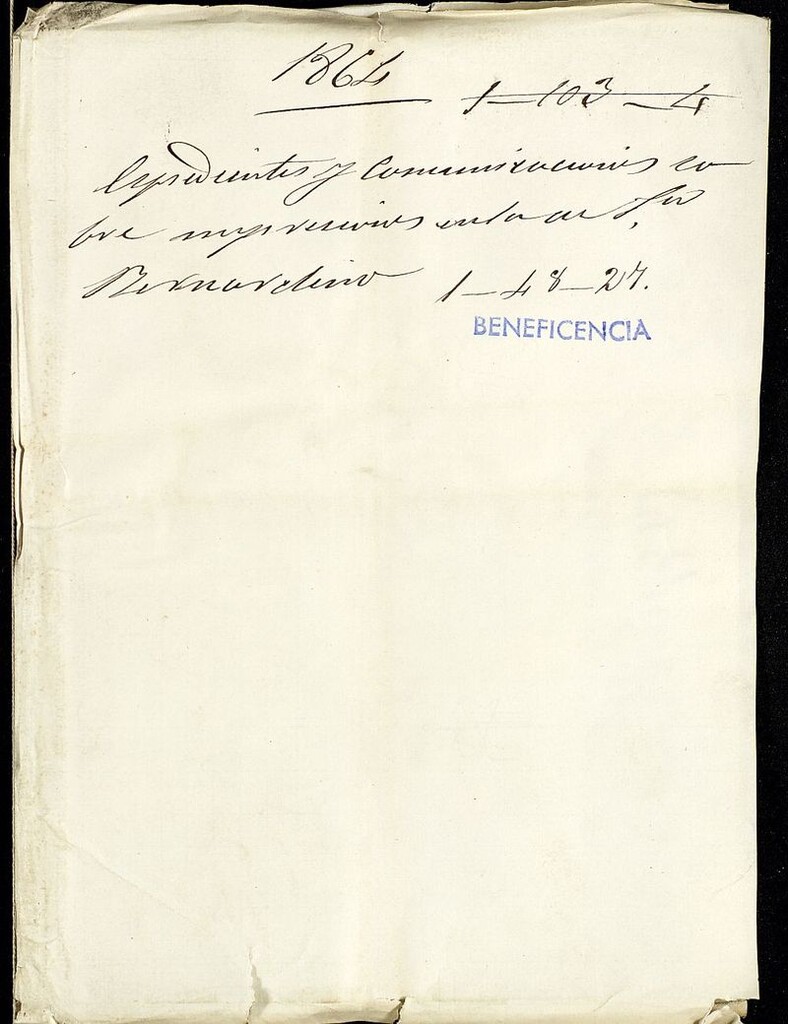 1864
1-103-4
Expedientes y Comunicaciones so
bre impresiones en la de Sn
Bernardino 1-48-27.
BENEFICENCIA